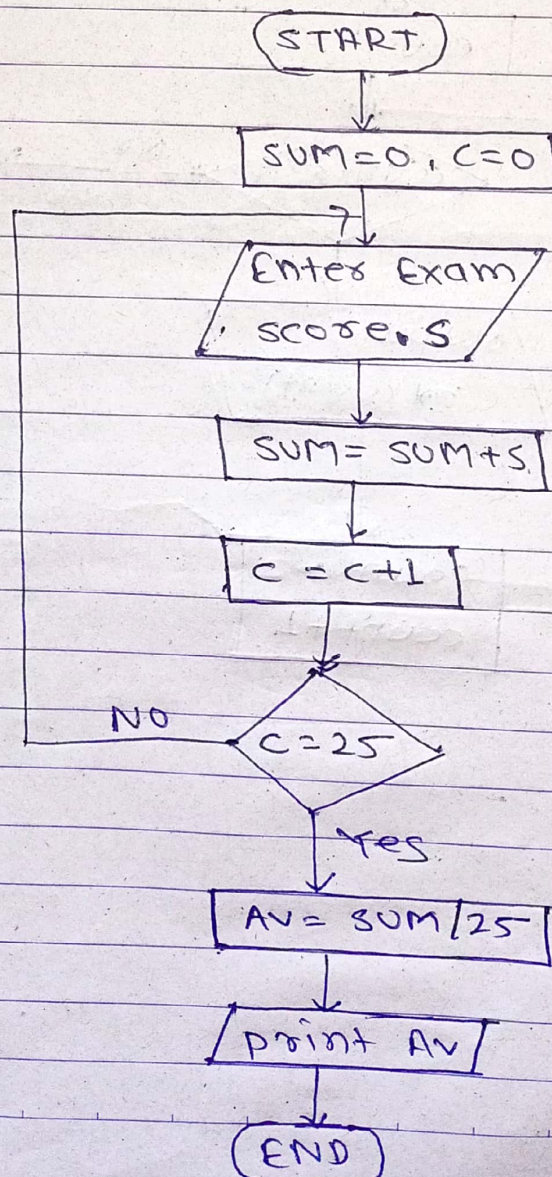 START
SUM=0, C=0
Enter Exam
score, S
SUM= SUM+S
C = C+1
NO
C=25
Yes
AV= SUM/25
print AV
END